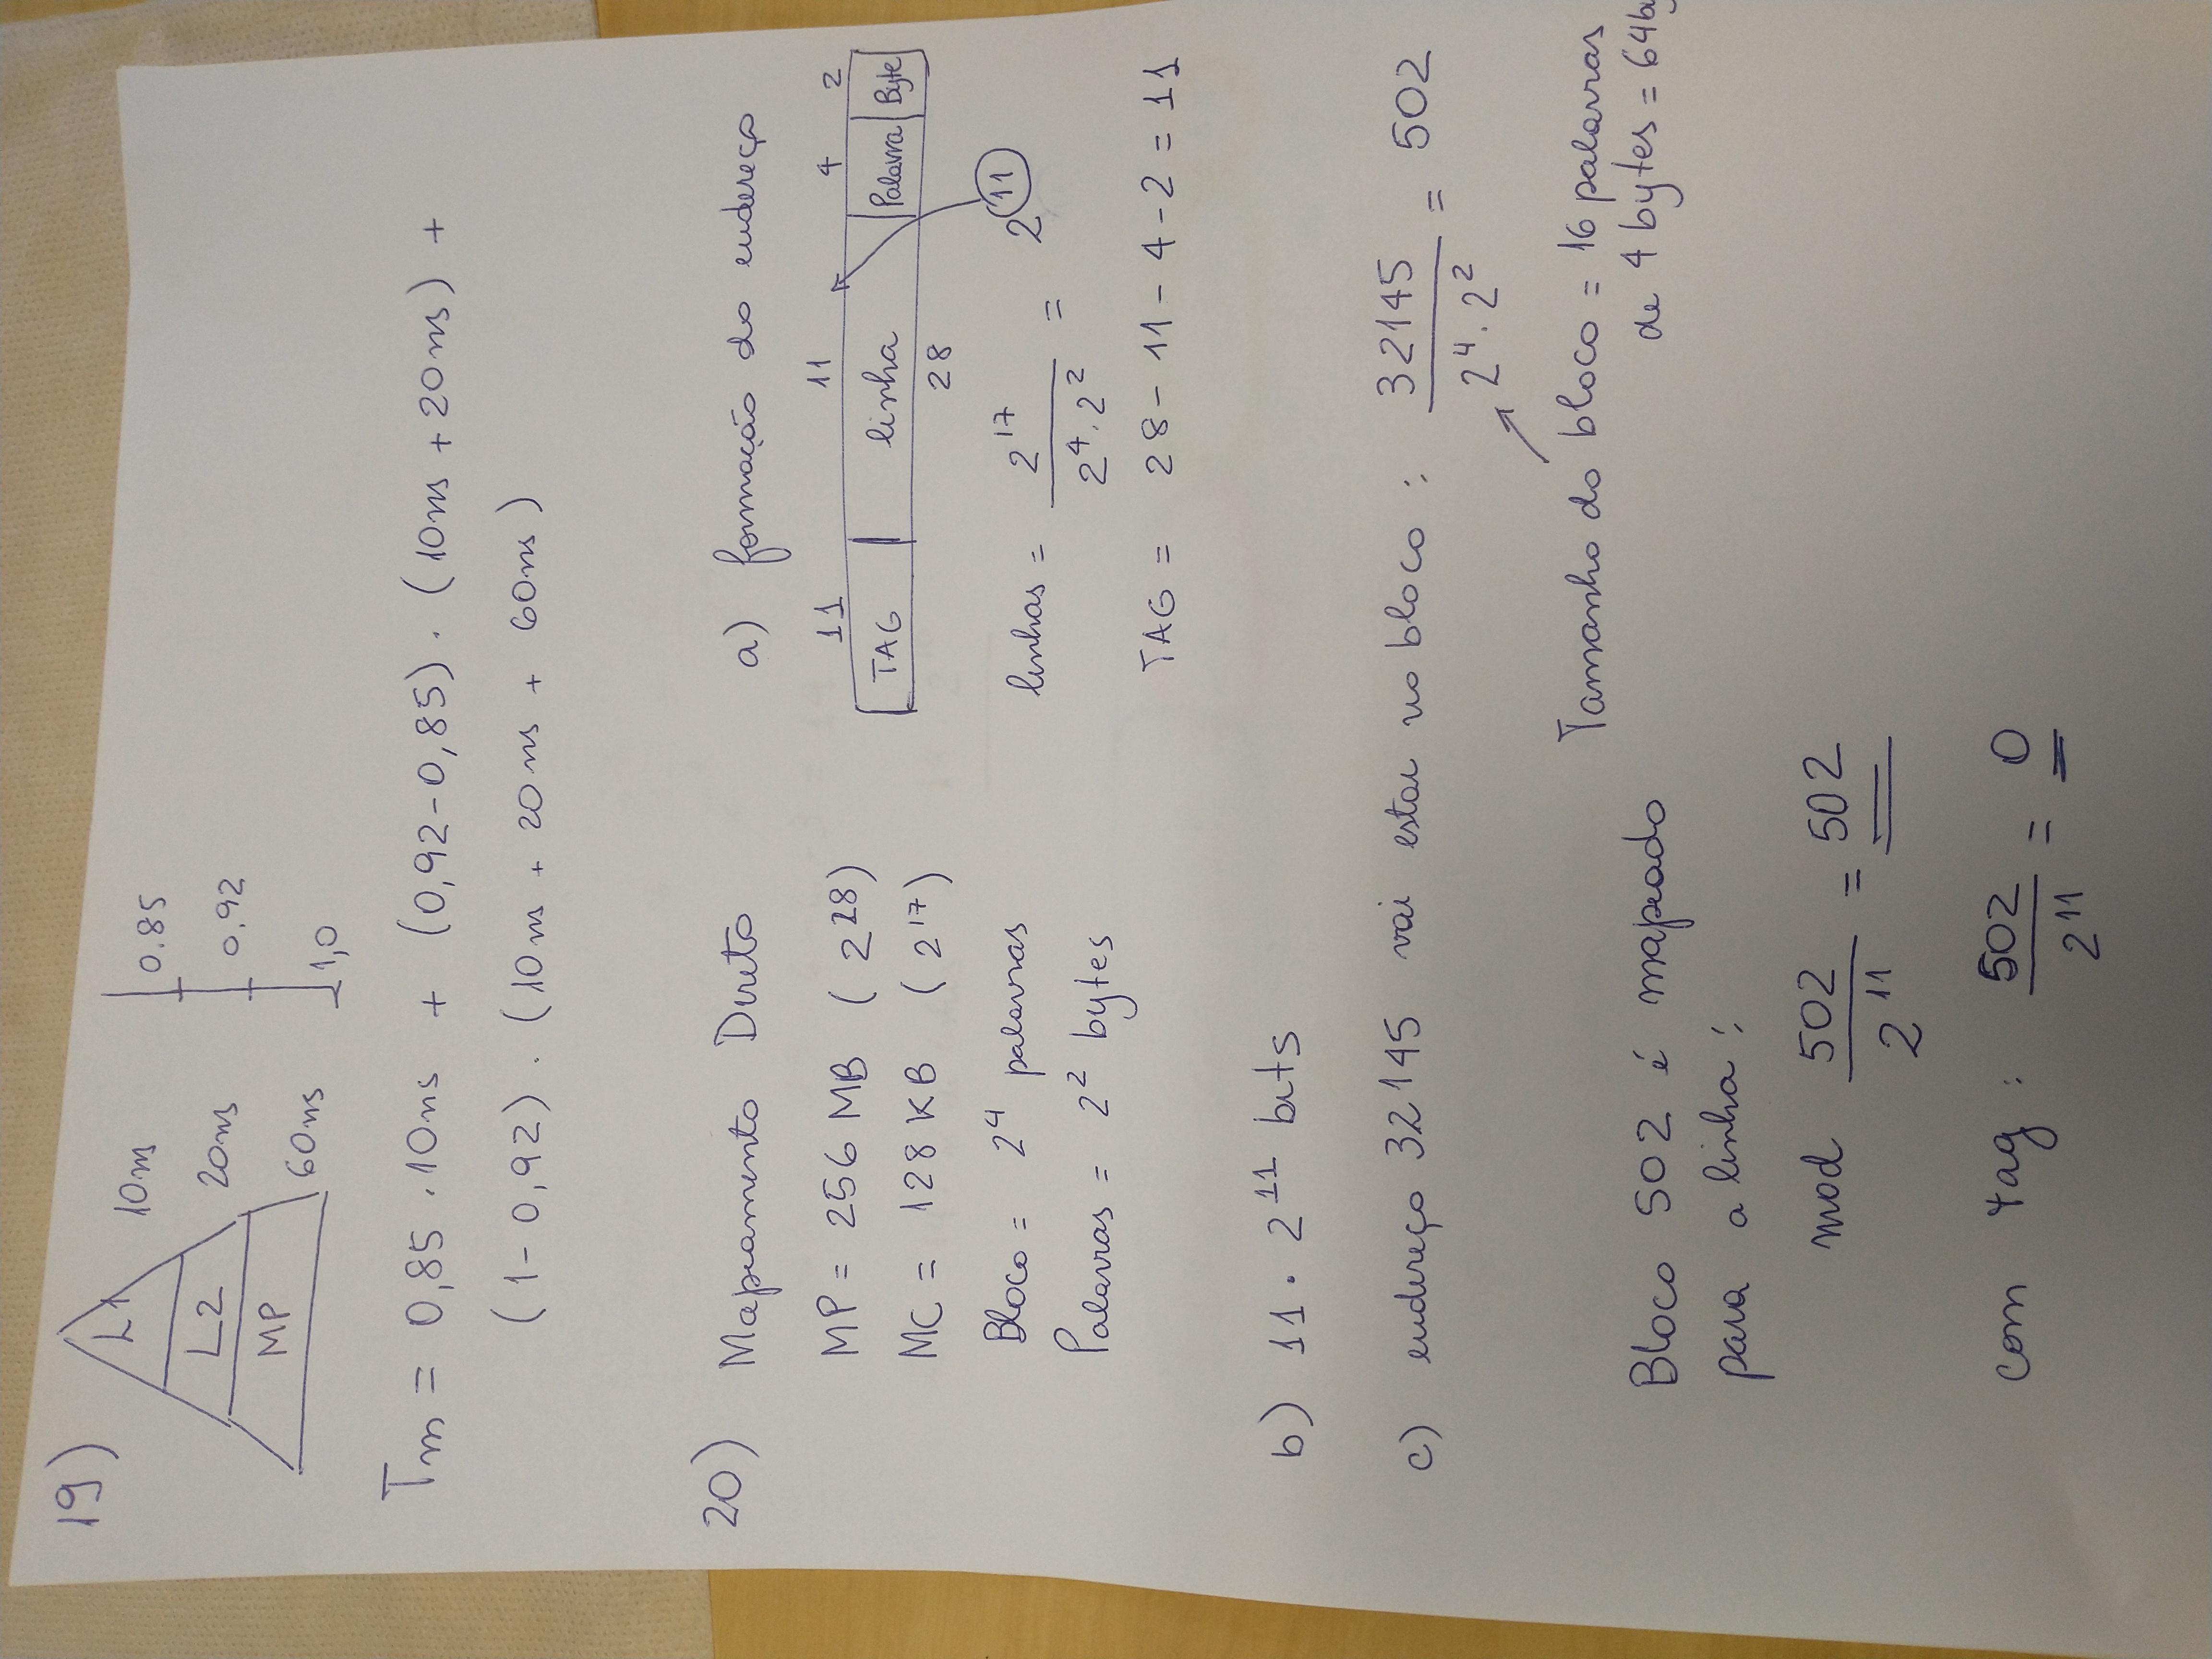 19)
L1 10ns 0.85
L2 20ns 0,92
MP 60ns 1,0
Tm = 0,85 . 10ns + (0,92-0,85) . (10ns + 20ns) +
(1-0,92) . (10ns + 20ns + 60ns)
20) Mapeamento Direto
MP = 256 MB (2^28)
MC = 128 KB (2^17)
Bloco = 2^4 palavras
Palavras = 2^2 bytes
a) formação do endereço
11 11 4 2
TAG | linha | Palavra | Byte
28
linhas = 2^17 / 2^4 . 2^2 = 2^11
TAG = 28 - 11 - 4 - 2 = 11
b) 11 . 2^11 bits
c) endereço 32145 vai estar no bloco : 32145 / 2^4 . 2^2 = 502
Tamanho do bloco = 16 palavras
de 4 bytes = 64by
Bloco 502 é mapeado
para a linha :
mod 502 / 2^11 = 502
com tag : 502 / 2^11 = 0